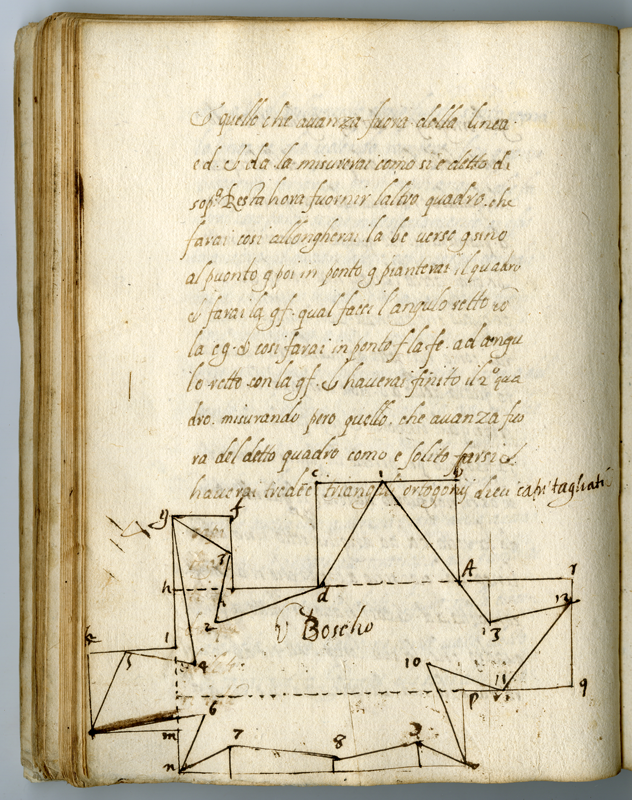 & quello che auanza fuora della linea
e d. & da la misurerai como si e detto di
sopª Resta hora fuornir laltro quadro. che
farai cosi allongherai la be uerso g sino
al puonto g poi in ponto g pianterai il quadro
& farai la gf. qual facci l'angulo retto cō
la eg. & cosi farai in ponto f la fe. ad angu
lo retto con la gf. & hauerai finito il 2º qua
dro. misurando pero quello. che auanza fuo
ra del detto quadro como e solito farsi &
hauerai tredeci triangoli ortogonij dieci capi tagliati
c 1 b
g f
3
h d A r
2 Boscho 13 12
k 1
5 4 10 11 q
6 p
m
7 8 9
n